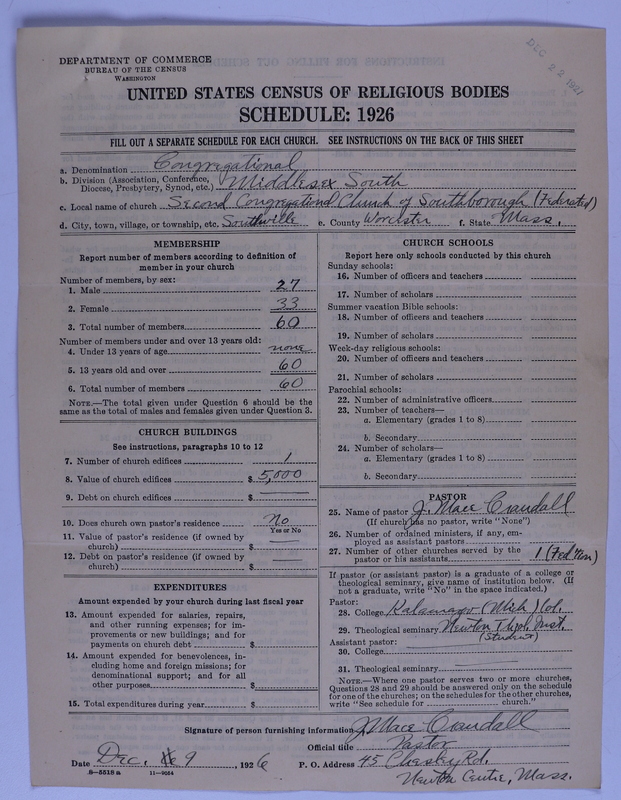 DEPARTMENT OF COMMERCE
BUREAU OF THE CENSUS
WASHINGTON
DEC 22 1927
UNITED STATES CENSUS OF RELIGIOUS BODIES
SCHEDULE: 1926
FILL OUT A SEPARATE SCHEDULE FOR EACH CHURCH. SEE INSTRUCTIONS ON THE BACK OF THIS SHEET
a. Denomination Congregational
b. Division (Association, Conference, Diocese, Presbytery, Synod, etc.) Middlesex South
c. Local name of church Second Congregational Church of Southborough (Federated)
d. City, town, village, or township, etc. Southville e. County Worcester f. State Mass.
MEMBERSHIP
Report number of members according to definition of
member in your church
Number of members, by sex:
1. Male 27
2. Female 33
3. Total number of members 60
Number of members under and over 13 years old:
4. Under 13 years of age none
5. 13 years old and over 60
6. Total number of members 60
NOTE.—The total given under Question 6 should be the
same as the total of males and females given under Question 3.
CHURCH BUILDINGS
See instructions, paragraphs 10 to 12
7. Number of church edifices 1
8. Value of church edifices $ 5,000
9. Debt on church edifices $
10. Does church own pastor's residence No
Yes or No
11. Value of pastor's residence (if owned by
church) $
12. Debt on pastor's residence (if owned by
church) $
EXPENDITURES
Amount expended by your church during last fiscal year
13. Amount expended for salaries, repairs,
and other running expenses; for im-
provements or new buildings; and for
payments on church debt $
14. Amount expended for benevolences, in-
cluding home and foreign missions; for
denominational support; and for all
other purposes $
15. Total expenditures during year $
CHURCH SCHOOLS
Report here only schools conducted by this church
Sunday schools:
16. Number of officers and teachers
17. Number of scholars
Summer vacation Bible schools:
18. Number of officers and teachers
19. Number of scholars
Week-day religious schools:
20. Number of officers and teachers
21. Number of scholars
Parochial schools:
22. Number of administrative officers
23. Number of teachers—
a. Elementary (grades 1 to 8)
b. Secondary
24. Number of scholars—
a. Elementary (grades 1 to 8)
b. Secondary
PASTOR
25. Name of pastor J. Mace Crandall
(If church has no pastor, write "None")
26. Number of ordained ministers, if any, em-
ployed as assistant pastors
27. Number of other churches served by the
pastor or his assistants 1 (Fed'tion)
If pastor (or assistant pastor) is a graduate of a college or
theological seminary, give name of institution below. (If
not a graduate, write "No" in the space indicated.)
Pastor:
28. College Kalamazo (Mich) Col.
29. Theological seminary Newton Theol. Inst.
Assistant pastor: (Student)
30. College
31. Theological seminary
NOTE.—Where one pastor serves two or more churches,
Questions 28 and 29 should be answered only on the schedule
for one of the churches; on the schedules for the other churches,
write "See schedule for church."
Signature of person furnishing information J. Mace Crandall
Official title Pastor
Date Dec. 9, 1926 P. O. Address 45 Chesley Rd.
8—5518 a 11—9054
Newton Centre, Mass.